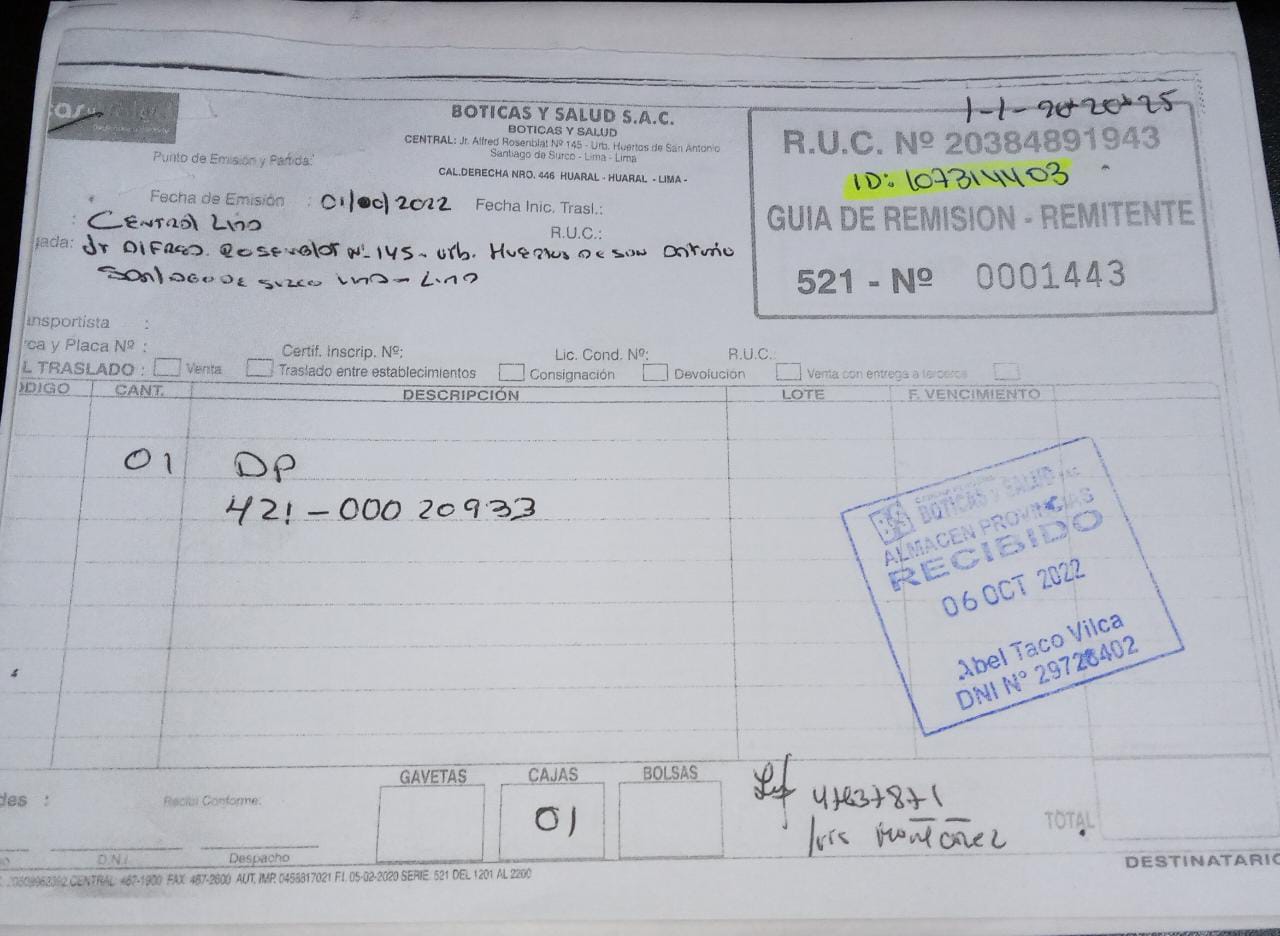 1-1-20+20+25
BOTICAS Y SALUD S.A.C.
BOTICAS Y SALUD
CENTRAL: Jr. Alfred Rosenblat Nº 145 - Urb. Huertos de San Antonio
Santiago de Surco - Lima - Lima
CAL.DERECHA NRO. 446 HUARAL - HUARAL - LIMA -
R.U.C. Nº 20384891943
ID: 107314403
GUIA DE REMISION - REMITENTE
521 - Nº 0001443
Punto de Emisión y Partida:
Fecha de Emisión : 01/00/2022 Fecha Inic. Trasl.:
: Central Lima R.U.C.:
gada: Jr Alfred Rosenblat Nº 145 - Urb. Huertos de San Antonio
Santiago de Surco Lima - Lima
ansportista :
rca y Placa Nº : Certif. Inscrip. Nº: Lic. Cond. Nº: R.U.C.:
L TRASLADO : Venta Traslado entre establecimientos Consignación Devolución Venta con entrega a terceros
ODIGO CANT. DESCRIPCIÓN LOTE F. VENCIMIENTO
01 DP
421-000 20933
BS BOTICAS Y SALUD S.A.C.
ALMACEN PROVINCIAS
RECIBIDO
06 OCT 2022
Abel Taco Vilca
DNI N° 29726402
des : Recibí Conforme: GAVETAS CAJAS BOLSAS
01
47637871
TOTAL
D.N.I. Despacho
DESTINATARIO
CENTRAL: 467-1900 FAX: 467-2600 AUT. IMP. 0456817021 F.I. 05-02-2020 SERIE: 521 DEL 1201 AL 2200